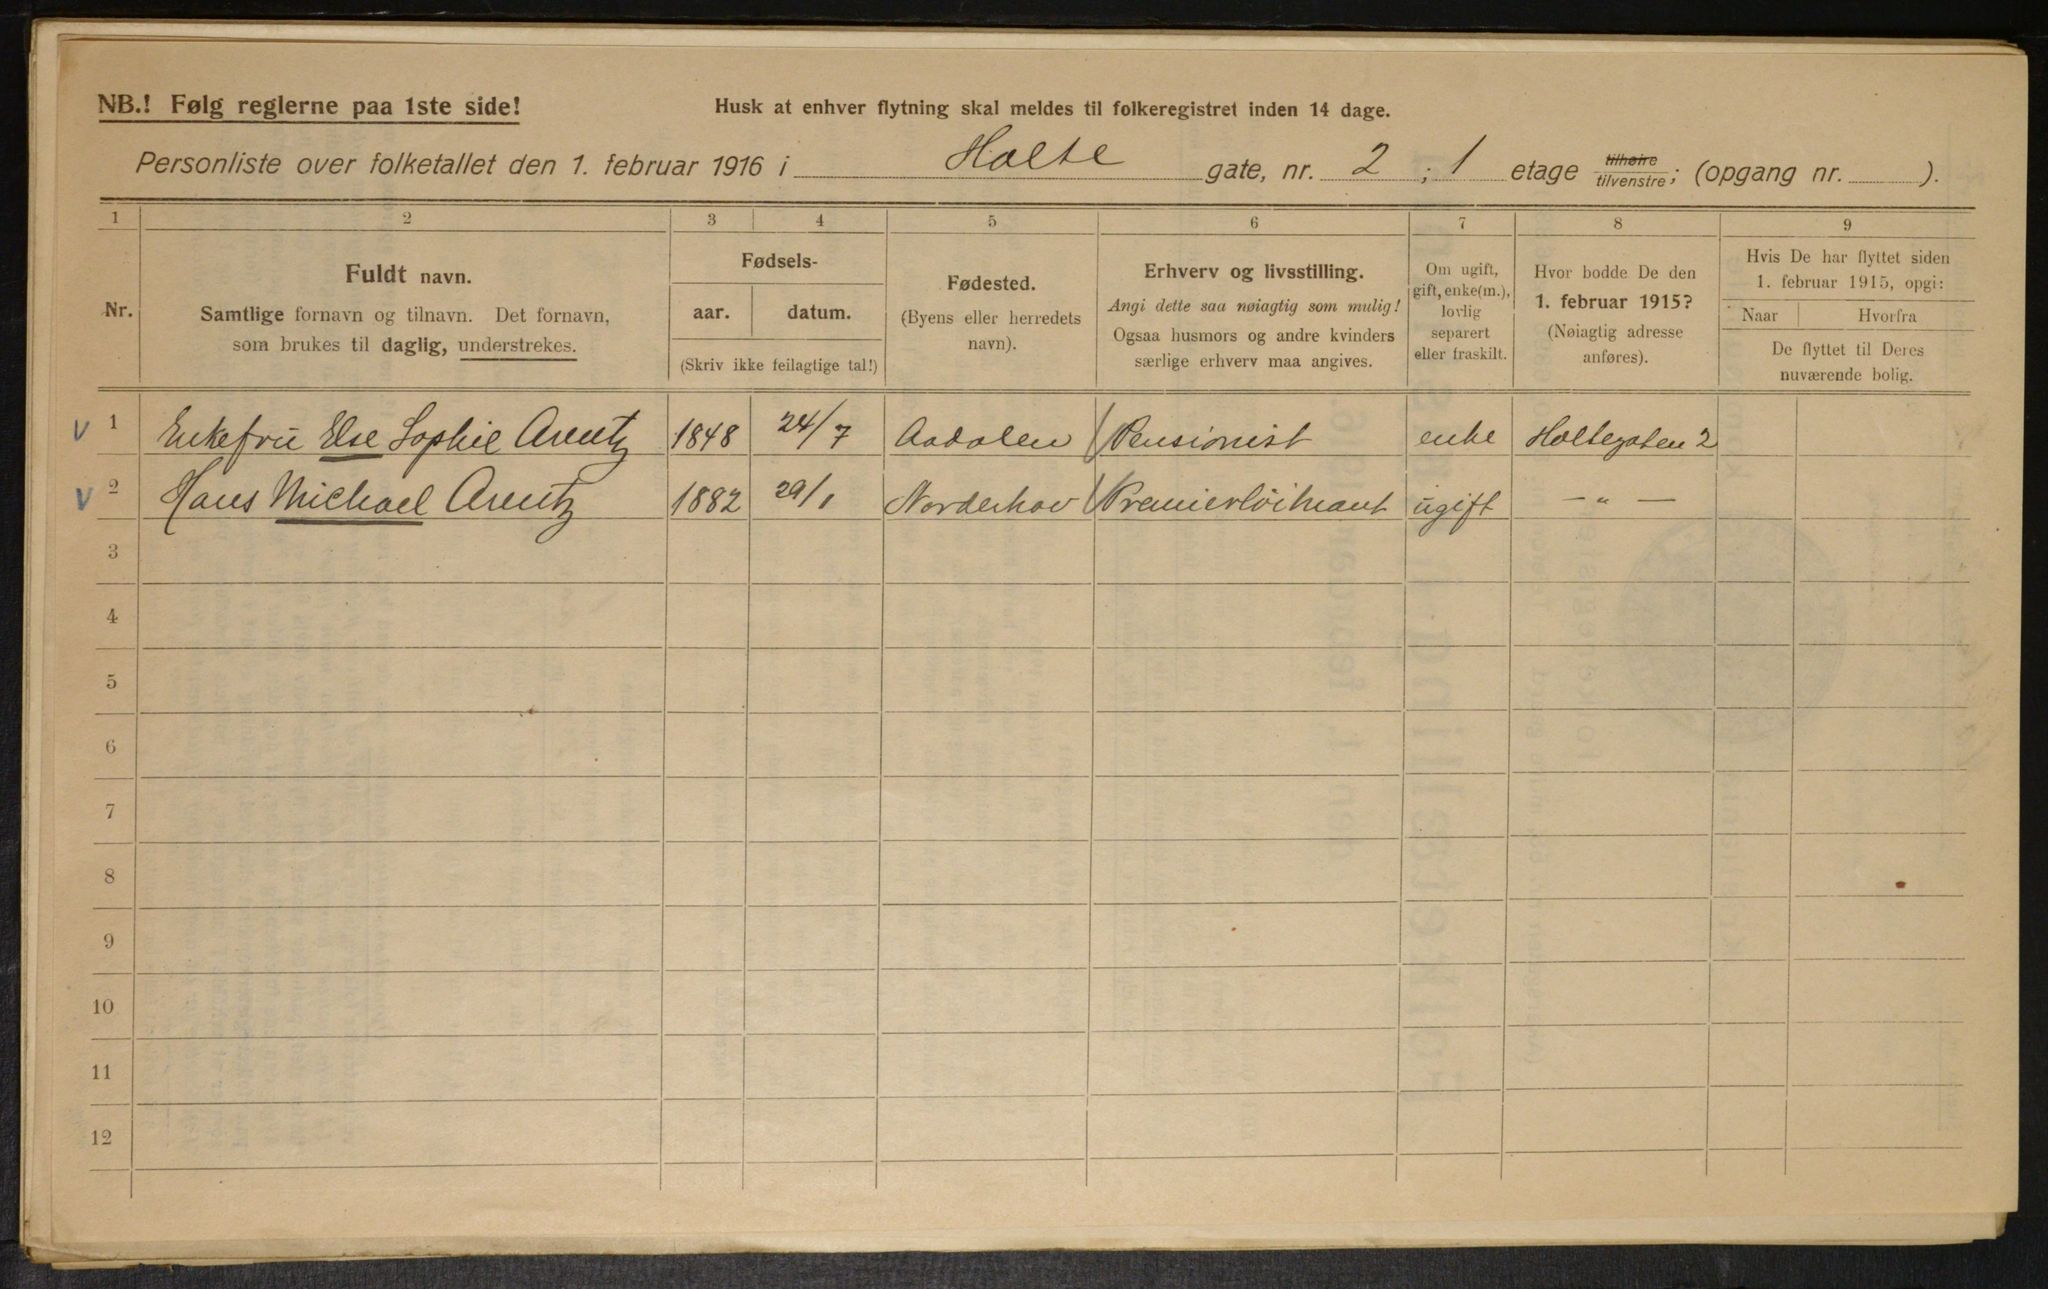 NB.! Følg reglerne paa 1ste side!
Husk at enhver flytning skal meldes til folkeregistret inden 14 dage.
Personliste over folketallet den 1. februar 1916 i Holte gate, nr. 2 ; 1 etage tilhøire/tilvenstre; (opgang nr. ).
1 2 3 4 5 6 7 8 9
Nr.
Fuldt navn.
Samtlige fornavn og tilnavn. Det fornavn,
som brukes til daglig, understrekes.
Fødsels-
aar. datum.
(Skriv ikke feilagtige tal!)
Fødested.
(Byens eller herredets
navn).
Erhverv og livsstilling.
Angi dette saa nøiagtig som mulig!
Ogsaa husmors og andre kvinders
særlige erhverv maa angives.
Om ugift,
gift, enke(m.),
lovlig
separert
eller fraskilt.
Hvor bodde De den
1. februar 1915?
(Nøiagtig adresse
anføres).
Hvis De har flyttet siden
1. februar 1915, opgi:
Naar Hvorfra
De flyttet til Deres
nuværende bolig.
V 1 Enkefru Else Sophie Arentz 1848 24/7 Aadalen Pensionist enke Holtegaten 2
V 2 Hans Michael Arentz 1882 29/1 Norderhov Premierløitnant ugift — " —
3
4
5
6
7
8
9
10
11
12